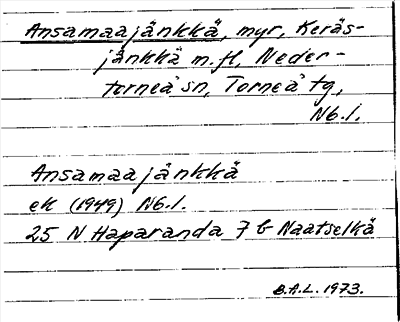 Ansamaajänkkä, myr, Keräs-
jänkkä m.fl, Neder-
torneå sn, Torneå tg,
Nb.l.
Ansamaajänkkä
ek (1949) Nb.l.
25 N Haparanda 7 b Naatselkä
B.A.L. 1973.